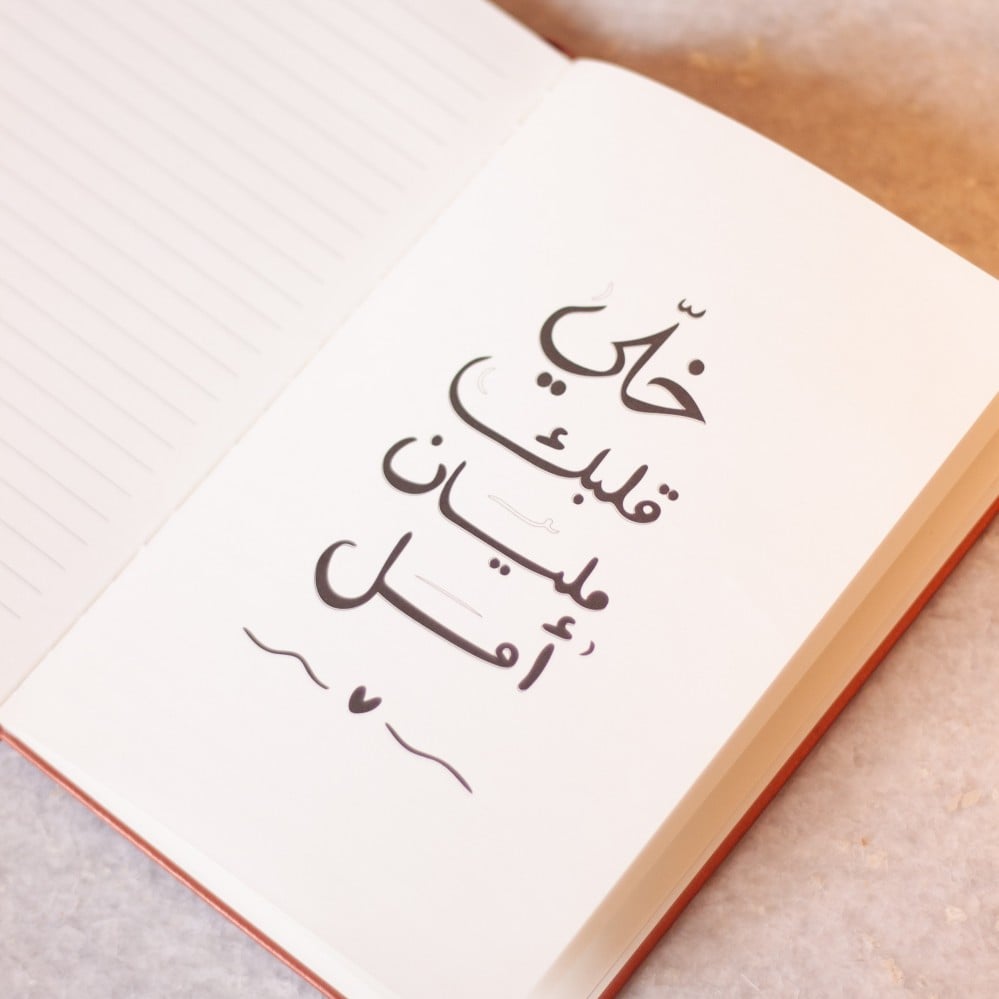 خلّي
قلبك
مليان
أمل